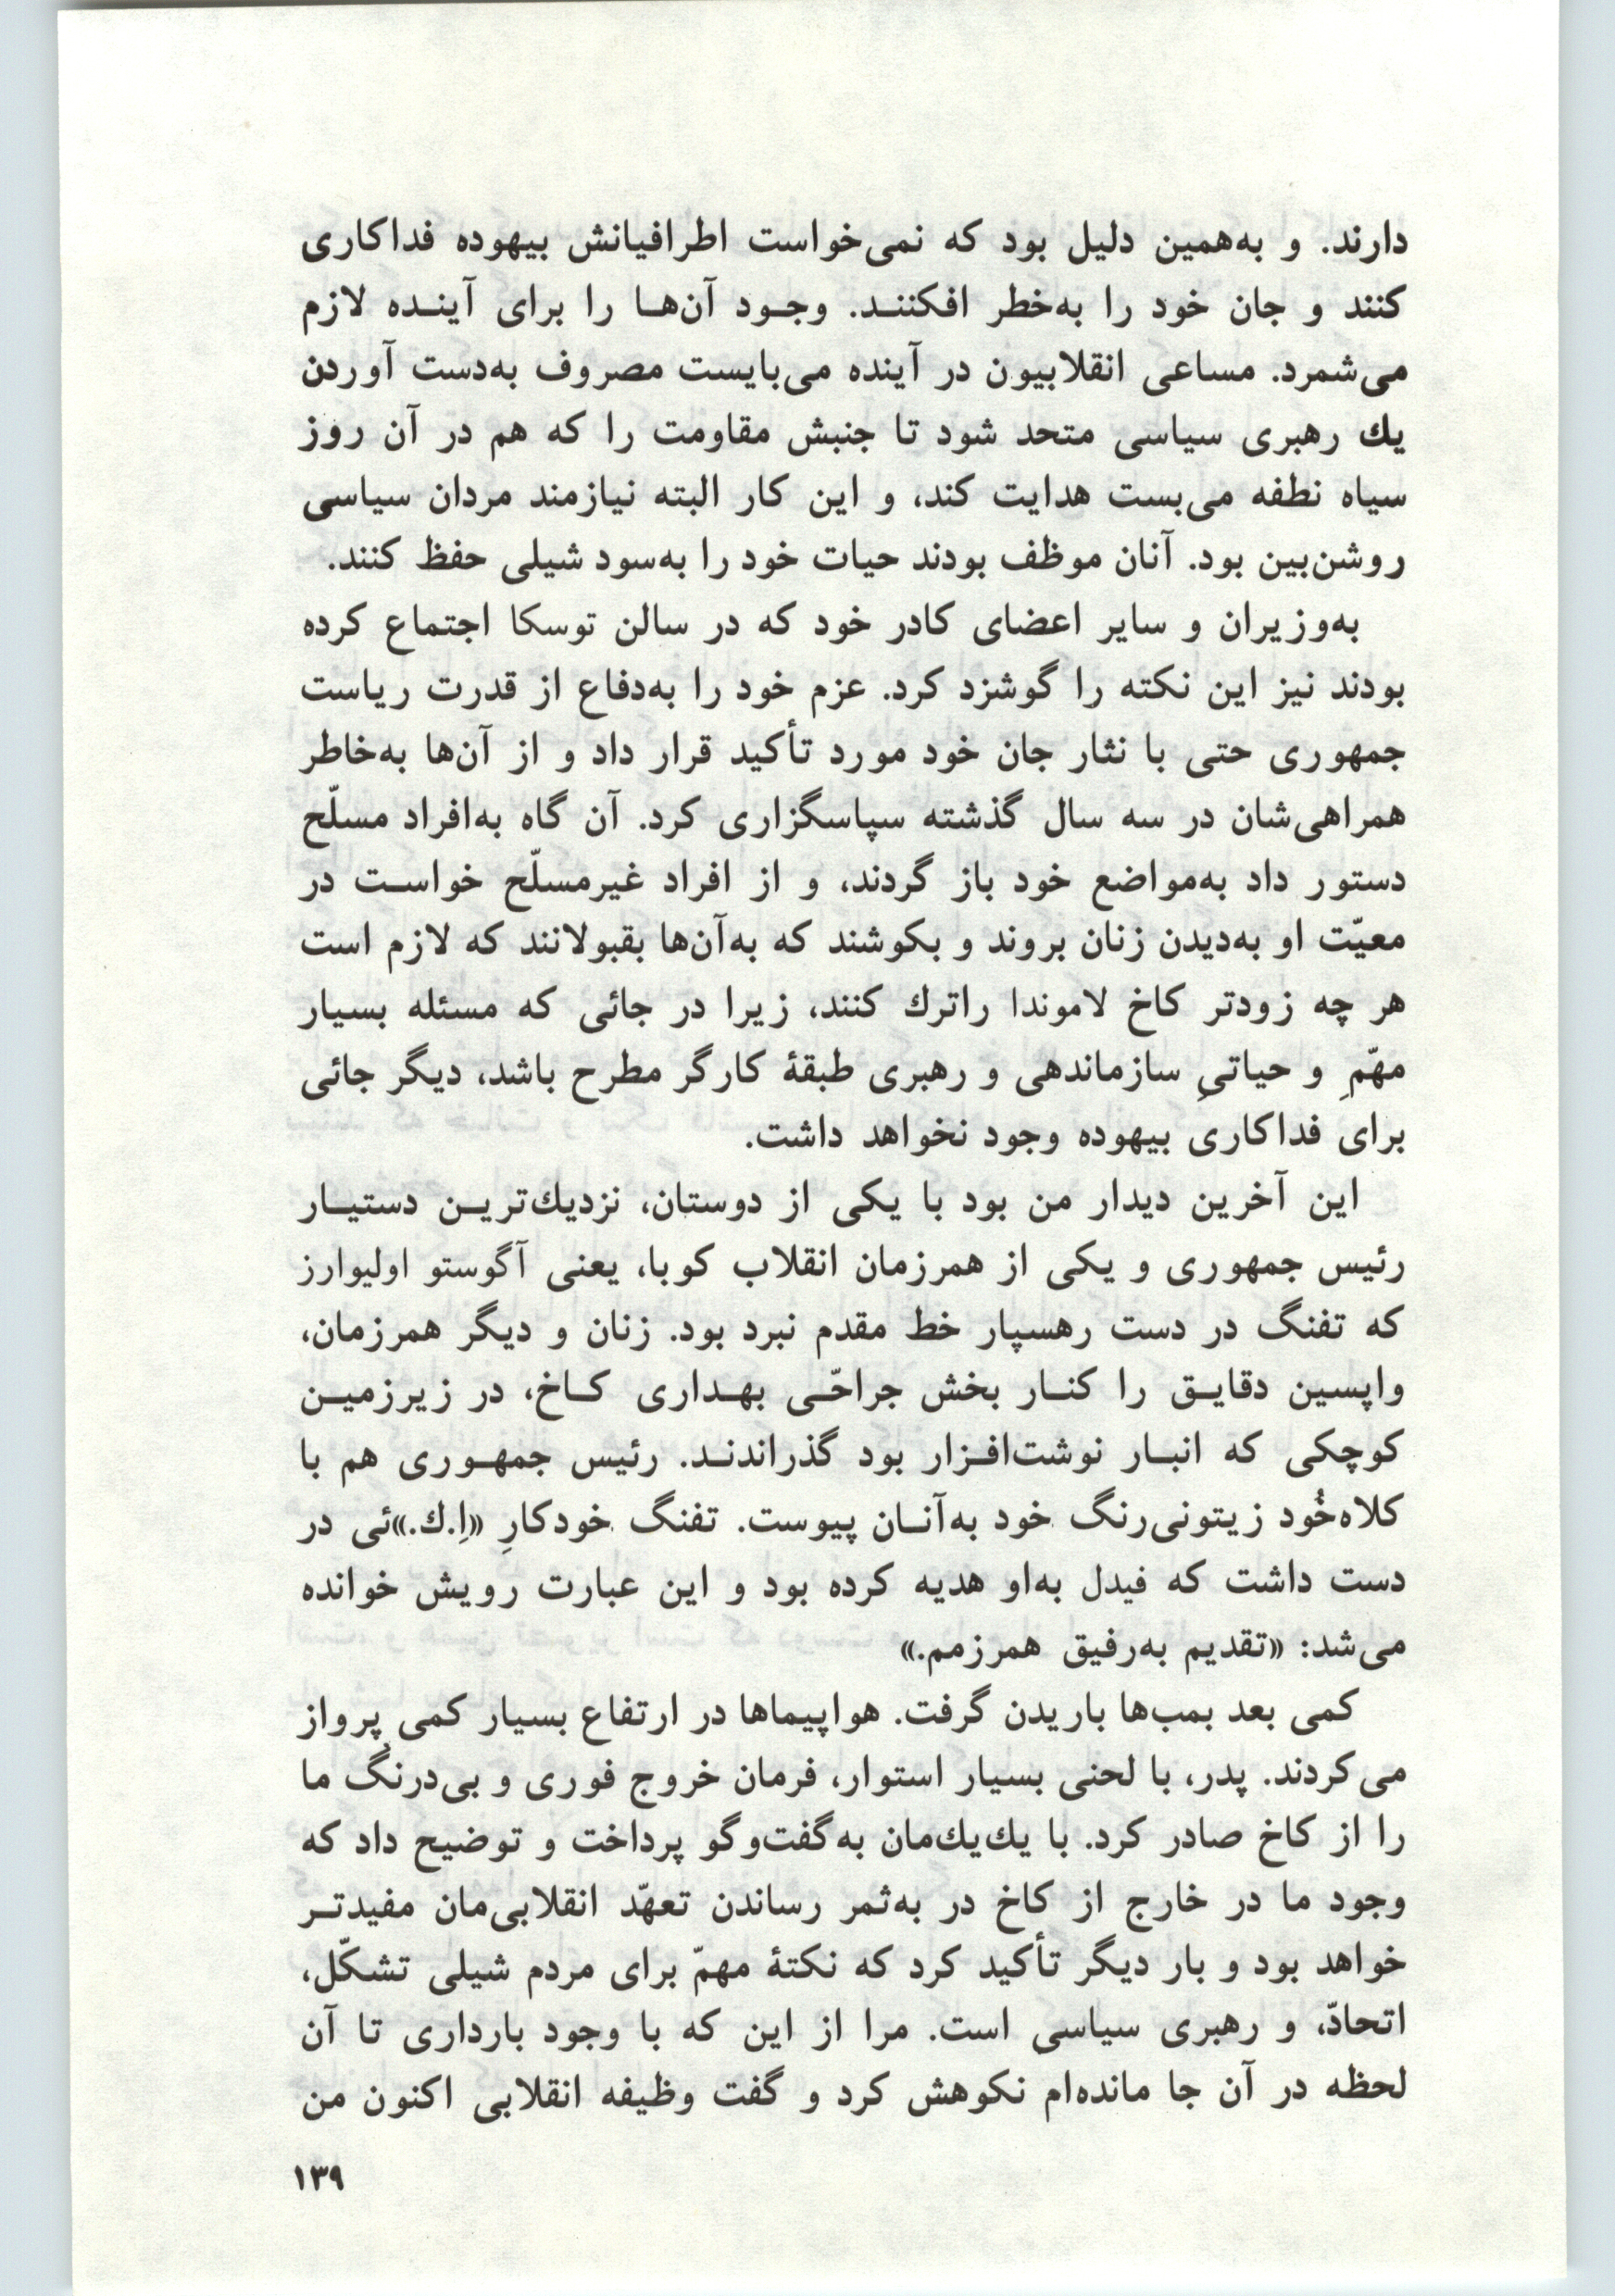 دارند. و به‌همین دلیل بود که نمی‌خواست اطرافیانش بیهوده فداکاری
کنند و جان خود را به‌خطر افکننـد. وجـود آن‌هـا را برای آینـده لازم
می‌شمرد. مساعی انقلابیون در آینده می‌بایست مصروف به‌دست آوردن
یك رهبری سیاسی متحد شود تا جنبش مقاومت را که هم در آن روز
سیاه نطفه می‌بست هدایت کند، و این کار البته نیازمند مردان سیاسی
روشن‌بین بود. آنان موظف بودند حیات خود را به‌سود شیلی حفظ کنند.
به‌وزیران و سایر اعضای کادر خود که در سالن توسکا اجتماع کرده
بودند نیز این نکته را گوشزد کرد. عزم خود را به‌دفاع از قدرت ریاست
جمهوری حتی با نثار جان خود مورد تأکید قرار داد و از آن‌ها به‌خاطر
همراهی‌شان در سه سال گذشته سپاسگزاری کرد. آن گاه به‌افراد مسلّح
دستور داد به‌مواضع خود باز گردند، و از افراد غیرمسلّح خواسـت در
معیّت او به‌دیدن زنان بروند و بکوشند که به‌آن‌ها بقبولانند که لازم است
هر چه زودتر کاخ لاموندا راترك کنند، زیرا در جائی که مسئله بسیار
مهّمِ و حیاتیِ سازماندهی و رهبری طبقهٔ کارگر مطرح باشد، دیگر جائی
برای فداکاری بیهوده وجود نخواهد داشت.
این آخرین دیدار من بود با یکی از دوستان، نزدیك‌تریـن دستیـار
رئیس جمهوری و یکی از همرزمان انقلاب کوبا، یعنی آگوستو اولیوارز
که تفنگ در دست رهسپار خط مقدم نبرد بود. زنان و دیگر همرزمان،
واپسین دقایـق را کنـار بخش جراحّـی بهـداری کـاخ، در زیرزمیـن
کوچکی که انبـار نوشت‌افـزار بود گذراندنـد. رئیس جمهـوری هم با
کلاه‌خُود زیتونی‌رنگ خود به‌آنـان پیوست. تفنگ خودکارِ «اِ.ك.»ئی در
دست داشت که فیدل به‌او هدیه کرده بود و این عبارت رویش خوانده
می‌شد: «تقدیم به‌رفیق همرزمم.»
کمی بعد بمب‌ها باریدن گرفت. هواپیماها در ارتفاع بسیار کمی پرواز
می‌کردند. پدر، با لحنی بسیار استوار، فرمان خروج فوری و بی‌درنگ ما
را از کاخ صادر کرد. با یك‌یك‌مان به‌گفت‌وگو پرداخت و توضیح داد که
وجود ما در خارج از کاخ در به‌ثمر رساندن تعهّد انقلابی‌مان مفیدتـر
خواهد بود و بار دیگر تأکید کرد که نکتهٔ مهمّ برای مردم شیلی تشکّل،
اتحادّ، و رهبری سیاسی است. مرا از این که با وجود بارداری تا آن
لحظه در آن جا مانده‌ام نکوهش کرد و گفت وظیفه انقلابی اکنون من
۱۳۹